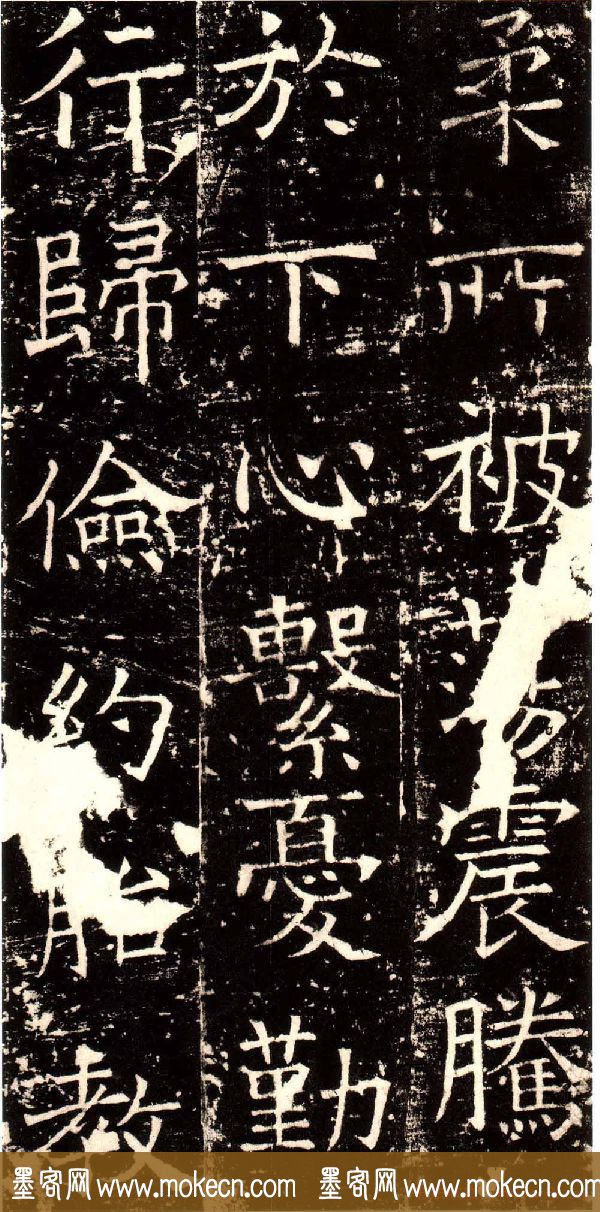 柔所被蕩震騰
於下心繫憂勤
行歸儉約胎教
墨客网 www.mokecn.com 墨客网 www.mokecn.com